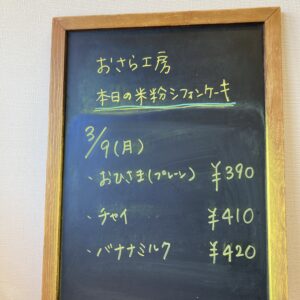 おさら工房
本日の米粉シフォンケーキ
3/9(月)
・おひさま(プレーン) ¥390
・チャイ ¥410
・バナナミルク ¥420